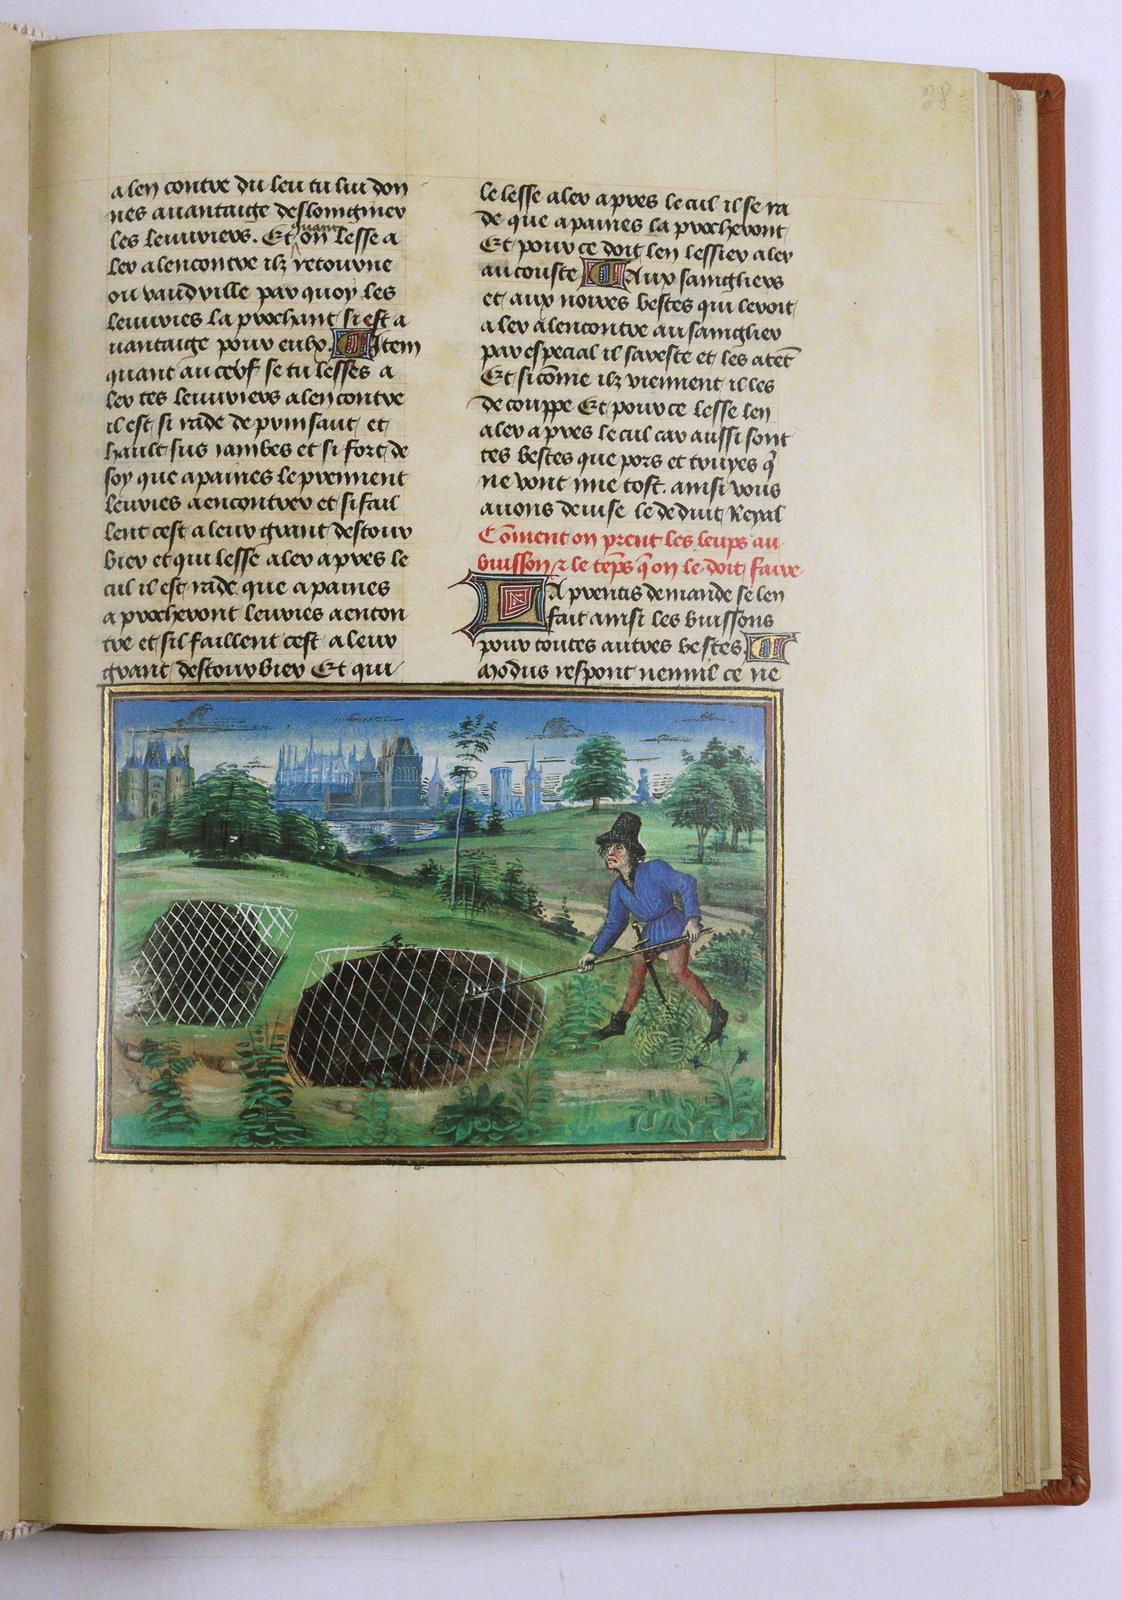 38
a len contre du leu tu luy don
nes auantaige desloingnier
les leuuriers. Et quant on lesse a
ler alencontre ilz retourne
ou vaudville par quoy les
leuuries la prochant si est a
uantaige pour eulx. Item
quant au cerf se tu lesses a
ler tes leuuriers alencontre
il est si rade de prinsaut et
hault sus iambes et si fort de
soy que apaines le prennent
leuuries a encontrer et si fail
lent cest a leur grant destour
bier et qui lesse aler apres le
cul il est rade que apaines
aprocheront leuuries a encon
tre et sil faillent cest a leur
grant destourbier Et qui
le lesse aler apres le cul il se ra
de que apaines la procheront
Et pour ce doit len lessier aler
au couste Aux saingliers
et aux noires bestes qui leroit
aler alencontre au sainglier
par especial il sareste et les atēt
Et si cōme ilz viennent il les
decouppe Et pour ce lesse len
aler apres le cul car aussi sont
tes bestes que pors et truyes q̄
ne vont mie tost. ainsi vous
auons deuise le deduit Royal
Cōment on prent les leups au
buisson z le tēps q̄ on le doit faire
Lapprentis demande se len
fait ainsi les buissons
pour toutes autres bestes
Modus respont nennil ce ne